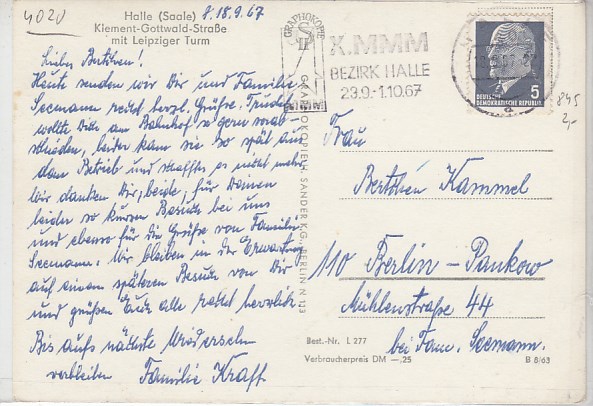 4020
Halle (Saale) 8. 18.9.67
Klement-Gottwald-Straße
mit Leipziger Turm
Liebes Bertchen!
Heute senden wir Dir und Familie
Seemann recht herzl. Grüße. Trude
wollte Dich am Bahnhof gern verab-
schieden, leider kam sie so spät aus
dem Betrieb und schaffte es nicht mehr.
Wir danken Dir, beide, für Deinen
leider so kurzen Besuch bei uns
und ebenso für die Grüße von Familie
Seemann. Wir bleiben in der Erwartung
auf einen späteren Besuch von Dir
und grüßen Euch alle recht herzlich.
Bis aufs nächste Wiedersehn
verbleiben Familie Kraft
GRAPHOKOPIE
GRAPHOKOPIE H. SANDER K.G., BERLIN N 113
X.MMM
BEZIRK HALLE
23.9.-1.10.67
5
DEUTSCHE
DEMOKRATISCHE REPUBLIK
845
2,-
Frau
Bertchen Kammel
110 Berlin-Pankow
Mühlenstraße 44
bei Fam. Seemann.
Best.-Nr. L 277
Verbraucherpreis DM -,25
B 8/63